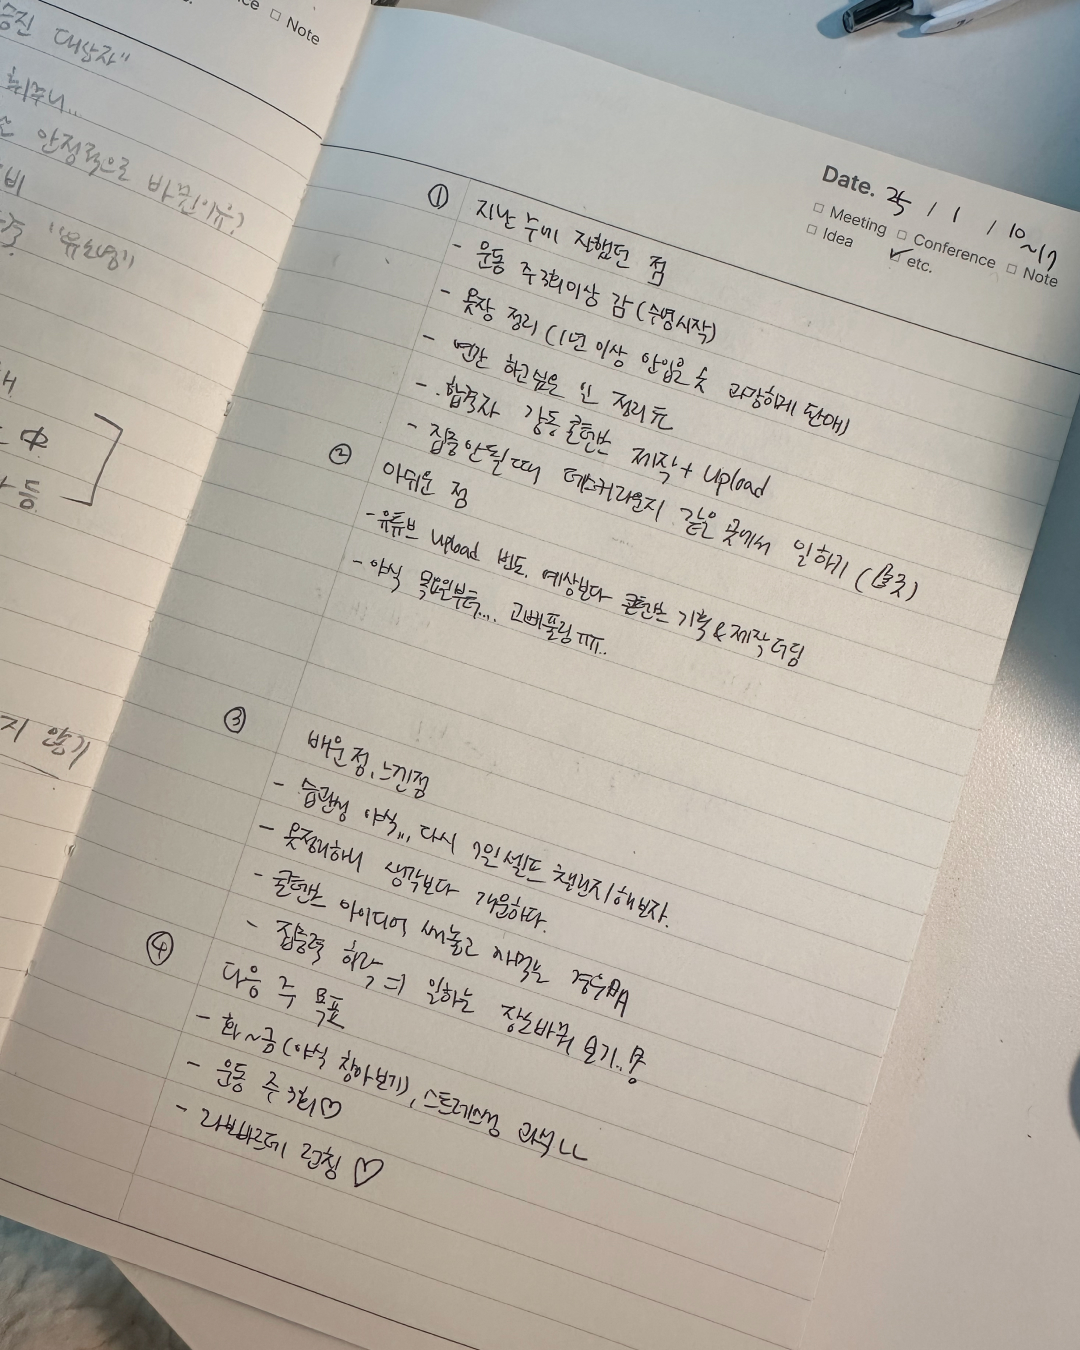 ce □ Note
대상자"
휘주니...
안정적으로 바뀐이유?
비
"유소영"
中
등
지 않기
Date. 25 / 1 / 10~17
□ Meeting □ Conference □ Note
□ Idea ✓ etc.
① 지난 주에 잘했던 점
- 운동 주 3회이상 감 (수영시작)
- 옷장 정리 (1년 이상 안입은 옷 과감하게 판매)
- 연간 하고싶은 일 정리
- 합격자 감동 콘텐츠 제작 + Upload
- 집중안될때 데스커라운지 같은 곳에서 일하기 (굿굿)
② 아쉬운 점
- 유튜브 Upload 빈도. 예상보다 콘텐츠 기획&제작 더딤
- 야식 목요일부터.... 고삐풀림 ㅠㅠ..
③ 배운 점, 느낀점
- 습관성 야식... 다시 7일 셀프 챌린지 해보자.
- 옷정리하니 생각보다 개운하다.
- 콘텐츠 아이디어 써놓고 까먹는 경우
- 집중력 하락 => 일하는 장소바꿔 보기..!
④ 다음 주 목표
- 화~금 (야식 참아보기), 스트레스성 과식 ㄴㄴ
- 운동 주 3회♡
- 라브바르데 런칭 ♡